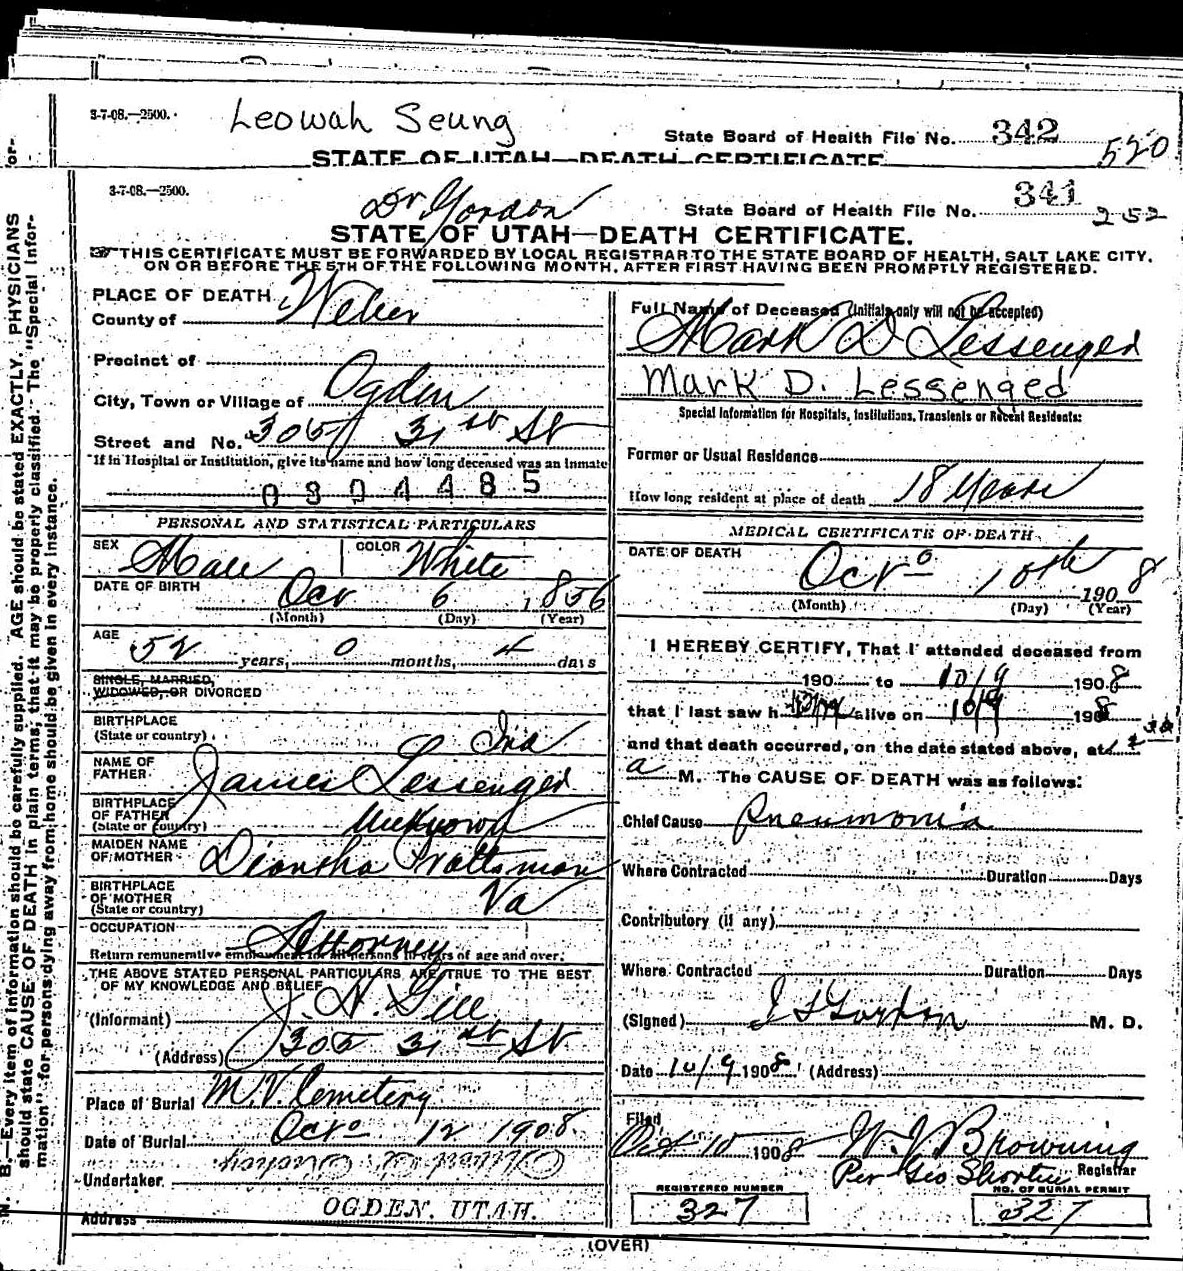 3-7-08.—2500.
Leowah Seung
State Board of Health File No. 342
520
STATE OF UTAH—DEATH CERTIFICATE
3-7-08.—2500.
Dr Gordon
State Board of Health File No. 341
252
STATE OF UTAH—DEATH CERTIFICATE.
THIS CERTIFICATE MUST BE FORWARDED BY LOCAL REGISTRAR TO THE STATE BOARD OF HEALTH, SALT LAKE CITY,
ON OR BEFORE THE 5TH OF THE FOLLOWING MONTH, AFTER FIRST HAVING BEEN PROMPTLY REGISTERED.
PLACE OF DEATH
County of Weber
Precinct of
City, Town or Village of Ogden
Street and No. 305 31st St
If in Hospital or Institution, give its name and how long deceased was an inmate
0304485
PERSONAL AND STATISTICAL PARTICULARS
SEX Male COLOR White
DATE OF BIRTH Oct 6 1856
(Month) (Day) (Year)
AGE
52 years, 0 months, 4 days
SINGLE, MARRIED,
WIDOWED, OR DIVORCED
BIRTHPLACE
(State or country) Ind
NAME OF
FATHER James Lessenger
BIRTHPLACE
OF FATHER
(State or country) Unknown
MAIDEN NAME
OF MOTHER
BIRTHPLACE
OF MOTHER
(State or country) Va
OCCUPATION Attorney
Return remunerative employment for all persons 10 years of age and over.
THE ABOVE STATED PERSONAL PARTICULARS ARE TRUE TO THE BEST
OF MY KNOWLEDGE AND BELIEF
(Informant) J. H. Gill
(Address) 305 31st St
Place of Burial M.V. Cemetery
Date of Burial Oct 12 1908
Undertaker
Address OGDEN, UTAH.
Full Name of Deceased (Initials only will not be accepted)
Mark D Lessenger
Mark D. Lessenged
Special Information for Hospitals, Institutions, Transients or Recent Residents:
Former or Usual Residence
How long resident at place of death 18 Years
MEDICAL CERTIFICATE OF DEATH
DATE OF DEATH
Oct 10th 1908
(Month) (Day) (Year)
I HEREBY CERTIFY, That I attended deceased from
190 to 10/9 1908
that I last saw h alive on 10/9 1908
and that death occurred, on the date stated above, at
a M. The CAUSE OF DEATH was as follows:
Chief Cause Pneumonia
Where Contracted Duration Days
Contributory (if any)
Where Contracted Duration Days
(Signed) Gordon M. D.
Date 10/9 1908 (Address)
Filed
Oct 10 1908 W. J. Browning
Per Geo Shorten Registrar
REGISTERED NUMBER
327
NO. OF BURIAL PERMIT
327
(OVER)
N. B.—Every item of information should be carefully supplied. AGE should be stated EXACTLY. PHYSICIANS
should state CAUSE OF DEATH in plain terms, that it may be properly classified. The "Special Infor-
mation" for persons dying away from home should be given in every instance.